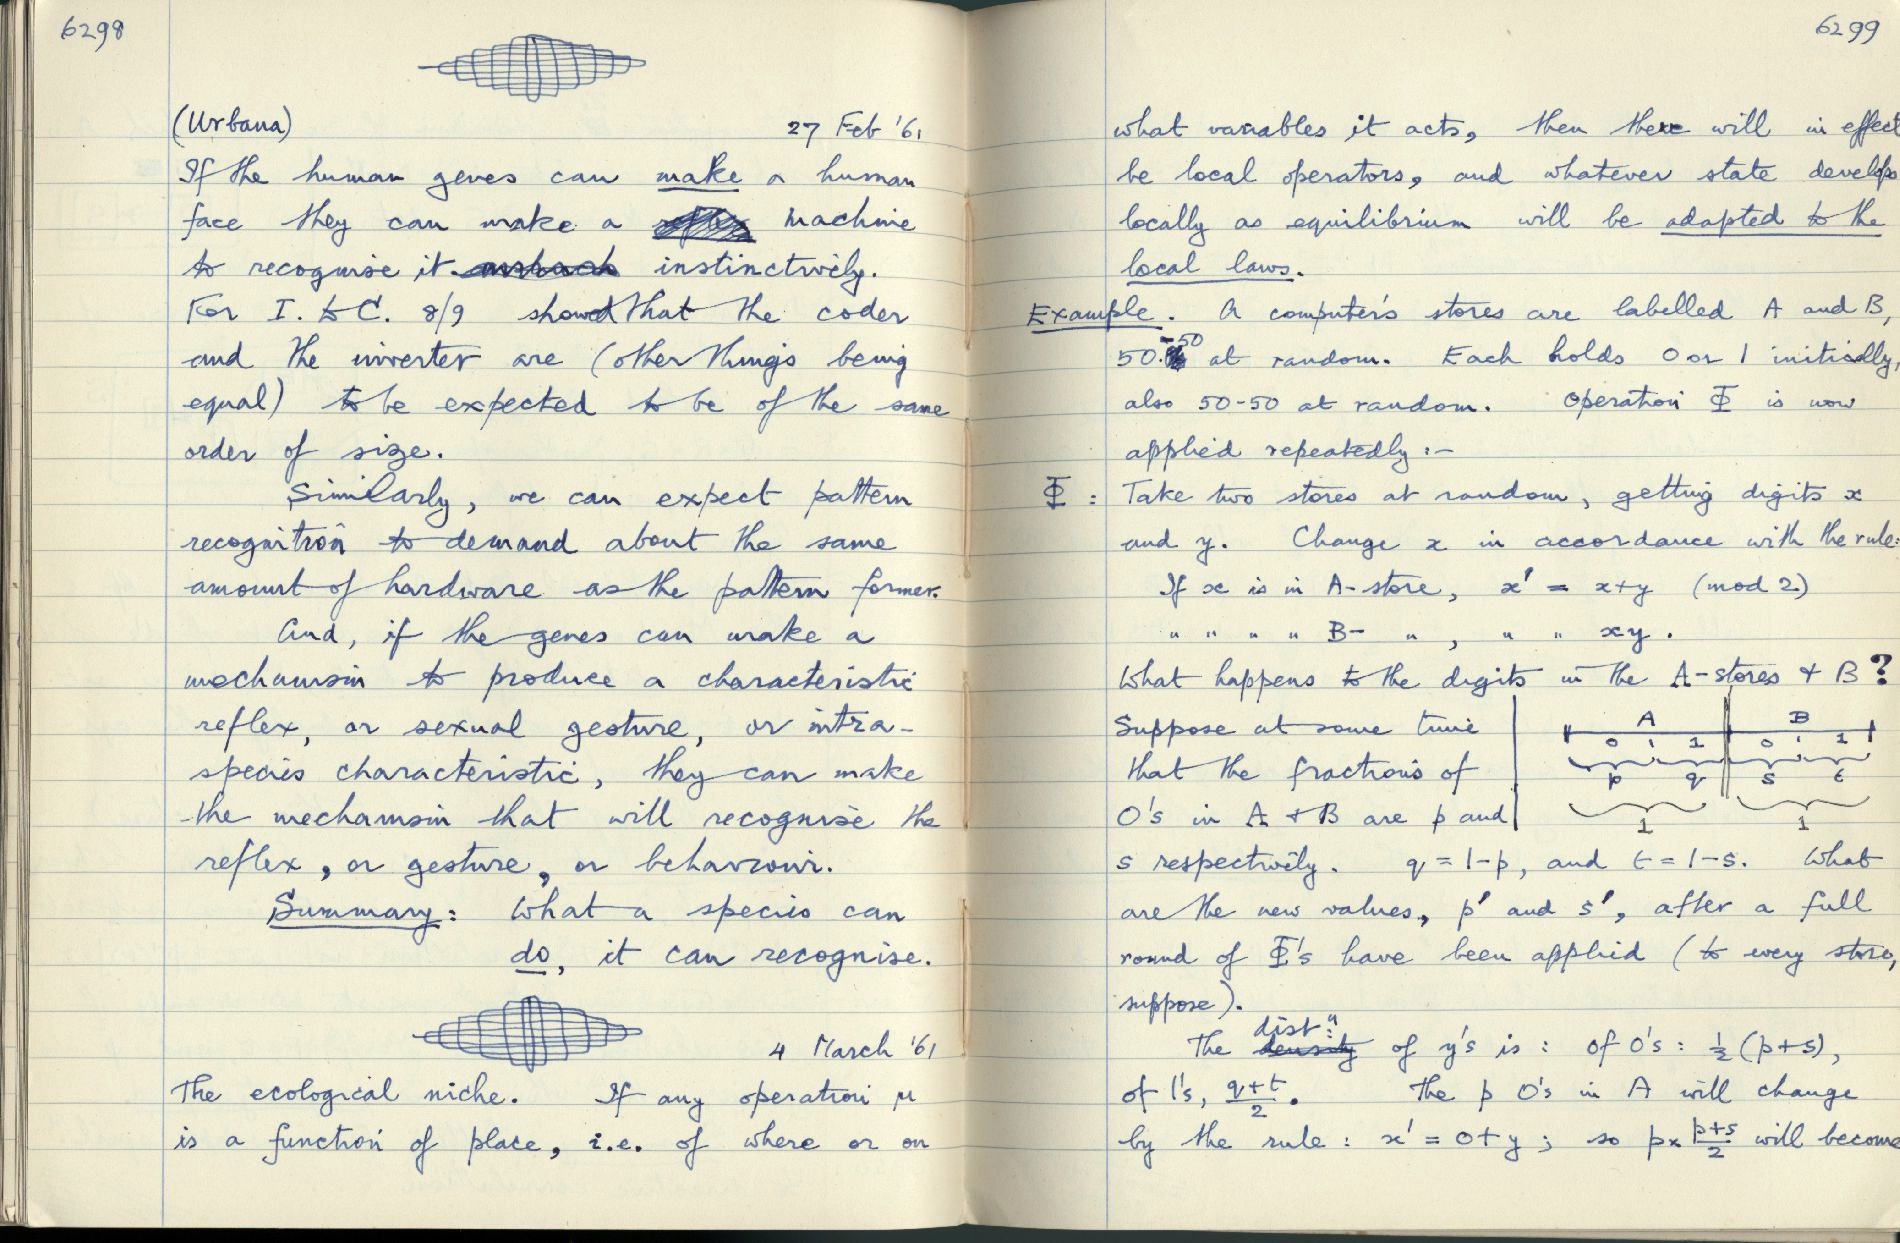 6298
(Urbana) 27 Feb '61
If the human genes can make a human
face they can make a machine
to recognise it instinctively.
For I. to C. 8/9 showed that the coder
and the inverter are (other things being
equal) to be expected to be of the same
order of size.
Similarly, we can expect pattern
recognition to demand about the same
amount of hardware as the pattern former.
And, if the genes can make a
mechanism to produce a characteristic
reflex, or sexual gesture, or intra-
species characteristic, they can make
the mechanism that will recognise the
reflex, or gesture, or behaviour.
Summary: What a species can
do, it can recognise.
4 March '61
The ecological niche. If any operation μ
is a function of place, i.e. of where or on
6299
what variables it acts, then there will in effect
be local operators, and whatever state develops
locally as equilibrium will be adapted to the
local laws.
Example. A computer's stores are labelled A and B,
50-50 at random. Each holds 0 or 1 initially,
also 50-50 at random. Operation Φ is now
applied repeatedly :-
Φ : Take two stores at random, getting digits x
and y. Change x in accordance with the rule:
If x is in A-store, x' = x+y (mod 2)
" " " " B- " , " " xy.
What happens to the digits in the A-stores + B?
Suppose at some time
that the fractions of
0's in A + B are p and
A B
0 1 0 1
p q s t
1 1
s respectively. q = 1-p, and t = 1-s. What
are the new values, p' and s', after a full
round of Φ's have been applied (to every store,
suppose).
The distn of y's is : of 0's : ½(p+s),
of 1's, (q+t)/2. The p 0's in A will change
by the rule : x' = 0+y ; so p × (p+s)/2 will become